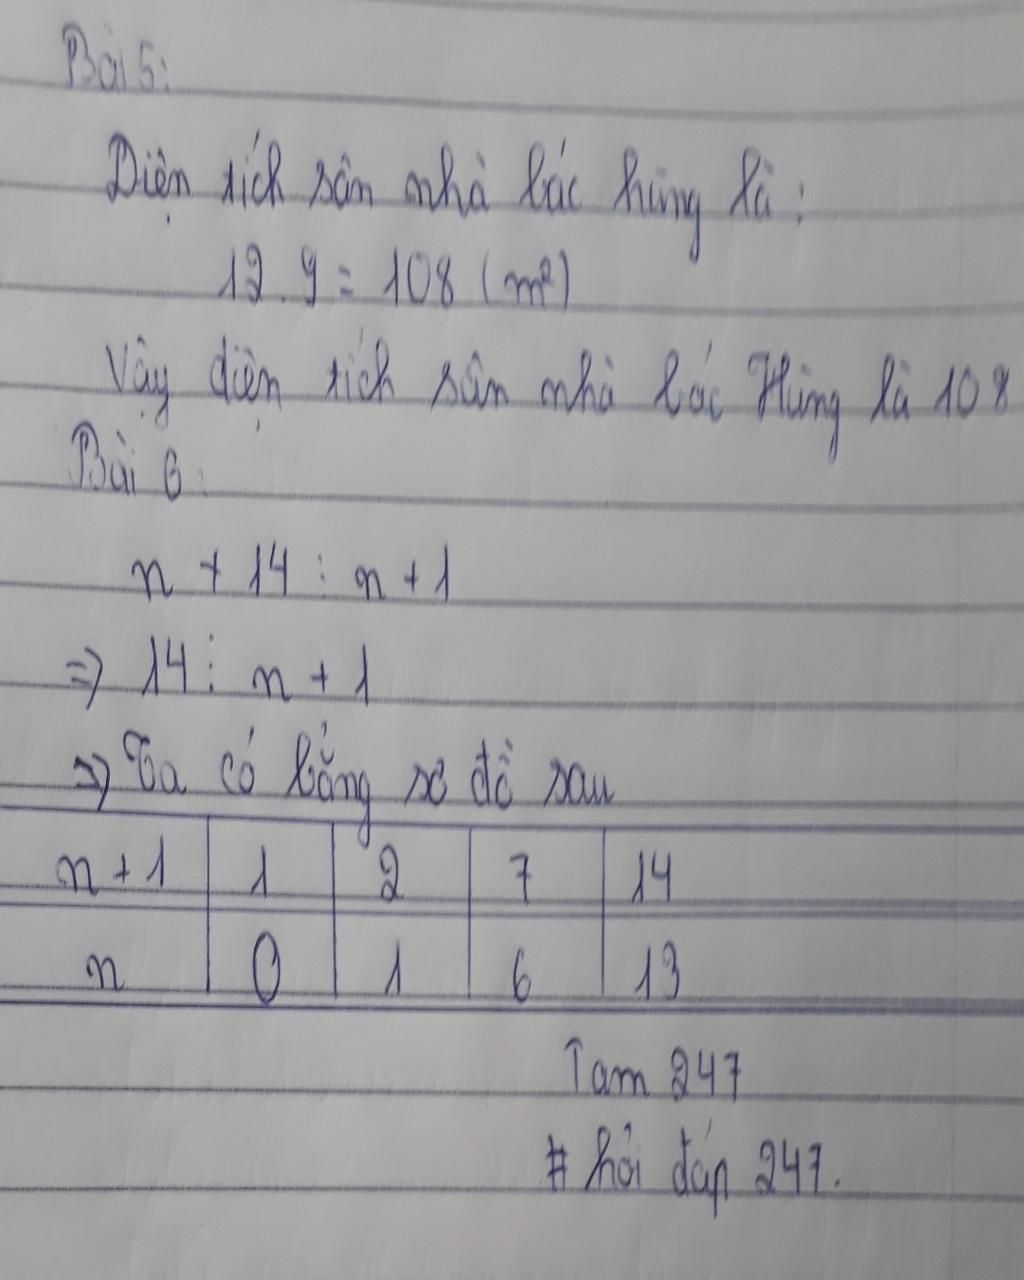 Bài 5:
Diện tích sân nhà bác hùng là:
12.9 = 108 (m²)
Vậy diện tích sân nhà bác Hùng là 108
Bài 6:
n + 14 ⋮ n + 1
⇒ 14 ⋮ n + 1
⇒ Ta có bảng sơ đồ sau
n + 1 1 2 7 14
n 0 1 6 13
Tam 247
# hỏi đáp 247.